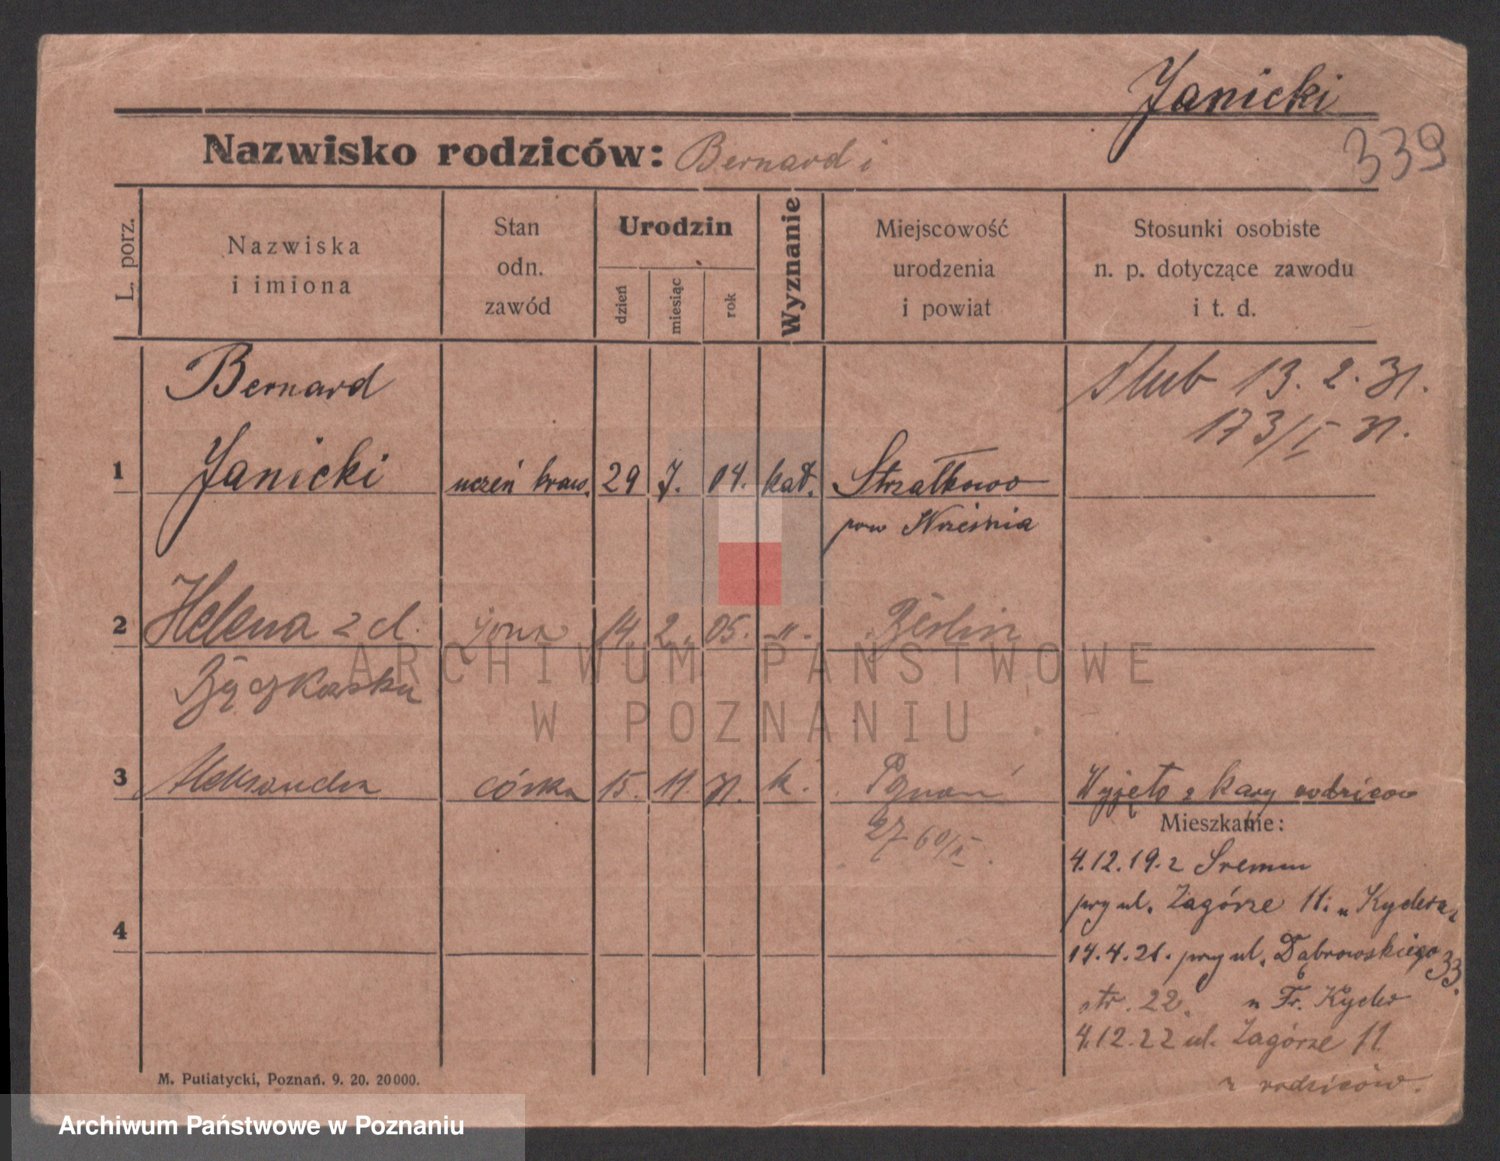 Janicki
339
Nazwisko rodziców: Bernard i
L. porz.
Nazwiska
i imiona
Stan
odn.
zawód
Urodzin
dzień
miesiąc
rok
Wyznanie
Miejscowość
urodzenia
i powiat
Stosunki osobiste
n. p. dotyczące zawodu
i t. d.
Bernard
ślub 13. 2. 31.
173/I 31.
1 Janicki uczeń kraw. 29 7. 04. kat. Strzałkowo
pow Września
2 Helena z d. żona 14. 2. 05. -"- Berlin
3 Aleksandra córka 15. 11. 31. k. Poznań
Wyjęto z karty rodziców
2760/II.
Mieszkanie:
4.12.19. z Śremu
przy ul. Zagórze 11: u
4
14.4.21. przy ul. Dąbrowskiego 33.
str. 22. u Fr.
4.12.22 ul. Zagórze 11
u rodziców.
M. Putiatycki, Poznań. 9. 20. 20000.
ARCHIWUM PAŃSTWOWE
W POZNANIU
Archiwum Państwowe w Poznaniu